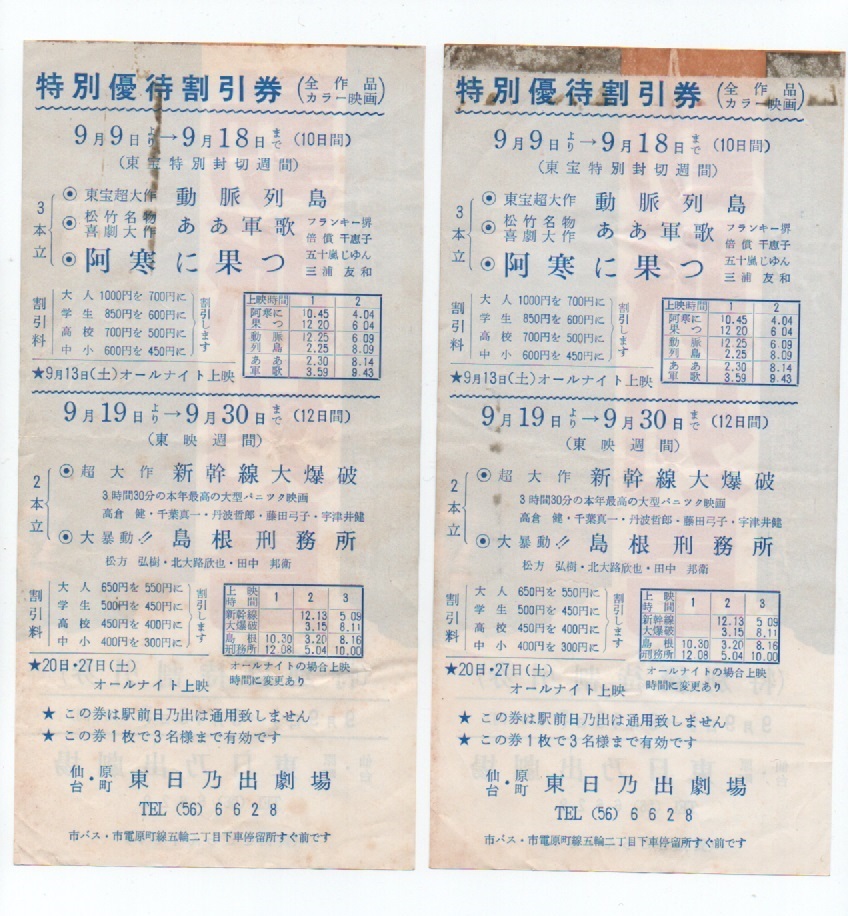 特別優待割引券(全作品カラー映画)
9月9日より→9月18日まで(10日間)
(東宝特別封切週間)
3本立
◉ 東宝超大作 動脈列島
◉ 松竹名物喜劇大作 ああ軍歌 フランキー堺 倍償千恵子
◉ 阿寒に果つ 五十嵐じゅん 三浦友和
割引料
大人 1000円を 700円に
学生 850円を 600円に
高校 700円を 500円に
中小 600円を 450円に
割引します
上映時間 1 2
阿寒に果つ 10.45 4.04
12 20 6 04
動脈列島 12.25 6.09
2.25 8.09
ああ軍歌 2.30 8.14
3.59 9.43
★9月13日(土)オールナイト上映
9月19日より→9月30日まで(12日間)
(東映週間)
2本立
◉ 超大作 新幹線大爆破
3時間30分の本年最高の大型パニック映画
高倉 健・千葉真一・丹波哲郎・藤田弓子・宇津井健
◉ 大暴動!! 島根刑務所
松方 弘樹・北大路欣也・田中 邦衛
割引料
大人 650円を 550円に
学生 500円を 450円に
高校 450円を 400円に
中小 400円を 300円に
割引します
上映時間 1 2 3
新幹線大爆破 12.13 5 09
3.15 8.11
島根刑務所 10.30 3.20 8.16
12 08 5.04 10.00
★20日・27日(土)
オールナイト上映
オールナイトの場合上映
時間に変更あり
★ この券は駅前日乃出は通用致しません
★ この券1枚で3名様まで有効です
仙台・原町 東日乃出劇場
TEL (56) 6628
市バス・市電原町線五輪二丁目下車停留所すぐ前です
特別優待割引券(全作品カラー映画)
9月9日より→9月18日まで(10日間)
(東宝特別封切週間)
3本立
◉ 東宝超大作 動脈列島
◉ 松竹名物喜劇大作 ああ軍歌 フランキー堺 倍償千恵子
◉ 阿寒に果つ 五十嵐じゅん 三浦友和
割引料
大人 1000円を 700円に
学生 850円を 600円に
高校 700円を 500円に
中小 600円を 450円に
割引します
上映時間 1 2
阿寒に果つ 10.45 4.04
12 20 6 04
動脈列島 12.25 6.09
2.25 8.09
ああ軍歌 2.30 8.14
3.59 9.43
★9月13日(土)オールナイト上映
9月19日より→9月30日まで(12日間)
(東映週間)
2本立
◉ 超大作 新幹線大爆破
3時間30分の本年最高の大型パニック映画
高倉 健・千葉真一・丹波哲郎・藤田弓子・宇津井健
◉ 大暴動!! 島根刑務所
松方 弘樹・北大路欣也・田中 邦衛
割引料
大人 650円を 550円に
学生 500円を 450円に
高校 450円を 400円に
中小 400円を 300円に
割引します
上映時間 1 2 3
新幹線大爆破 12.13 5 09
3.15 8.11
島根刑務所 10.30 3.20 8.16
12 08 5.04 10.00
★20日・27日(土)
オールナイト上映
オールナイトの場合上映
時間に変更あり
★ この券は駅前日乃出は通用致しません
★ この券1枚で3名様まで有効です
仙台・原町 東日乃出劇場
TEL (56) 6628
市バス・市電原町線五輪二丁目下車停留所すぐ前です